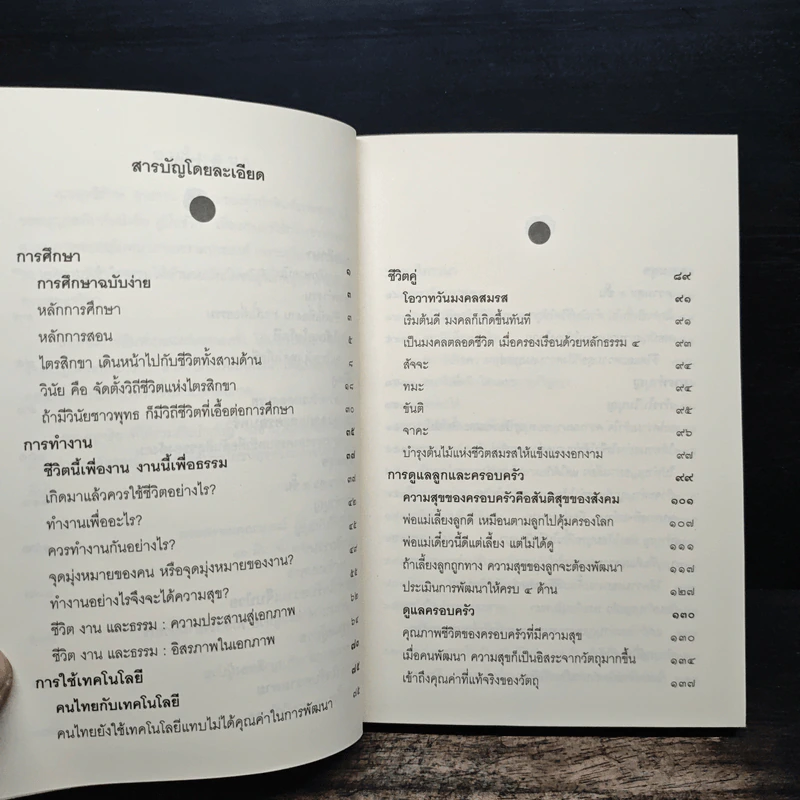 สารบัญโดยละเอียด
การศึกษา ๑
การศึกษาฉบับง่าย ๓
หลักการศึกษา ๓
หลักการสอน ๕
ไตรสิกขา เดินหน้าไปกับชีวิตทั้งสามด้าน ๘
วินัย คือ จัดตั้งวิถีชีวิตแห่งไตรสิกขา ๑๘
ถ้ามีวินัยชาวพุทธ ก็มีวิถีชีวิตที่เอื้อต่อการศึกษา ๓๐
การทำงาน ๓๕
ชีวิตนี้เพื่องาน งานนี้เพื่อธรรม ๓๗
เกิดมาแล้วควรใช้ชีวิตอย่างไร? ๓๘
ทำงานเพื่ออะไร?
ควรทำงานกันอย่างไร?
จุดมุ่งหมายของคน หรือจุดมุ่งหมายของงาน?
ทำงานอย่างไรจึงจะได้ความสุข?
ชีวิต งาน และธรรม : ความประสานสู่เอกภาพ
ชีวิต งาน และธรรม : อิสรภาพในเอกภาพ
การใช้เทคโนโลยี
คนไทยกับเทคโนโลยี
คนไทยยังใช้เทคโนโลยีแทบไม่ได้คุณค่าในการพัฒนา
ชีวิตคู่ ๘๙
โอวาทวันมงคลสมรส ๙๑
เริ่มต้นดี มงคลก็เกิดขึ้นทันที ๙๑
เป็นมงคลตลอดชีวิต เมื่อครองเรือนด้วยหลักธรรม ๔ ๙๓
สัจจะ ๙๔
ทมะ ๙๔
ขันติ ๙๕
จาคะ ๙๖
บำรุงต้นไม้แห่งชีวิตสมรสให้แข็งแรงงอกงาม ๙๗
การดูแลลูกและครอบครัว ๙๙
ความสุขของครอบครัวคือสันติสุขของสังคม ๑๐๑
พ่อแม่เลี้ยงลูกดี เหมือนตามลูกไปคุ้มครองโลก ๑๐๗
พ่อแม่เดี๋ยวนี้ดีแต่เลี้ยง แต่ไม่ได้ดู ๑๑๑
ถ้าเลี้ยงลูกถูกทาง ความสุขของลูกจะต้องพัฒนา ๑๑๗
ประเมินการพัฒนาให้ครบ ๔ ด้าน ๑๒๗
ดูแลครอบครัว ๑๓๐
คุณภาพชีวิตของครอบครัวที่มีความสุข ๑๓๐
เมื่อคนพัฒนา ความสุขก็เป็นอิสระจากวัตถุมากขึ้น ๑๓๔
เข้าถึงคุณค่าที่แท้จริงของวัตถุ ๑๓๗